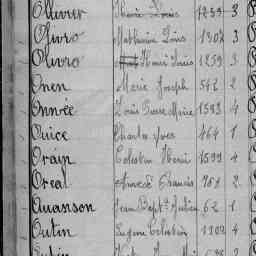 Ollivier Louis 1259 3
Olivro Mathurin Louis 1302 3
Olivro Henri Louis 1259 3
Onen Marie Joseph 542 2
Onnée Louis Pierre Marie 1593 4
Ouice Charles Yves 464 1
Orain Célestin Henri 1599 4
Oréal Francis 761 2
Ouanson Jean Bapte 62 1
Outin Eugène Célestin 1102 4